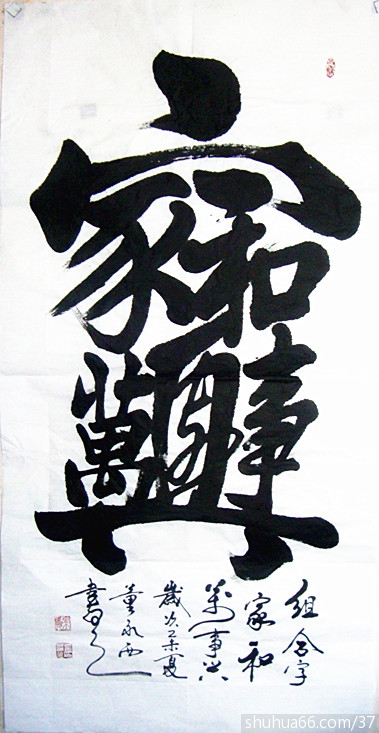 家和萬事興
組合字
家和
萬事兴
歲次乙未夏
董永西
書之
shuhua66.com/37